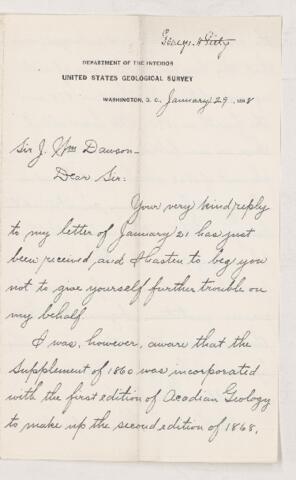 George H Girty
DEPARTMENT OF THE INTERIOR
UNITED STATES GEOLOGICAL SURVEY
WASHINGTON, D. C. January 29, 1898
Sir J. Wm Dawson-
Dear Sir:
Your very kind reply
to my letter of January 21 has just
been received, and I hasten to beg you
not to give yourself further trouble on
my behalf
I was, however, aware that the
Supplement of 1860 was incorporated
with the first edition of Acadian Geology
to make up the second edition of 1868,